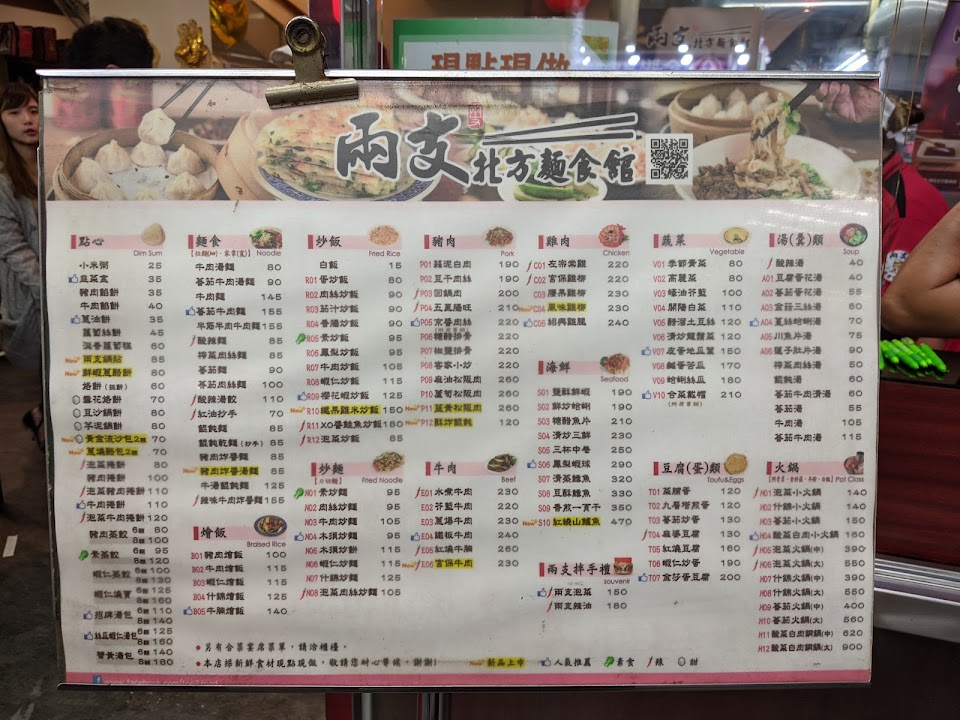 現點現做
兩支 北方麵食館
點心
Dim Sum
小米粥 25
韭菜盒 35
豬肉餡餅 35
牛肉餡餅 40
蔥油餅 45
蘿蔔絲餅 35
60
New 兩支鍋貼 85
New 80
烙餅 60
烙餅 70
豆沙鍋餅 80
芋泥鍋餅 80
New 黃金流沙包2顆 70
New 2顆 70
泡菜捲餅 80
豬肉捲餅 100
泡菜豬肉捲餅 110
牛肉捲餅 110
泡菜牛肉捲餅 120
豬肉蒸餃 6顆 80
8顆 100
素蒸餃 6顆 90
8顆 120
蝦仁蒸餃 6顆 100
8顆 130
蝦仁燒賣 6顆 125
8顆 160
招牌湯包 6顆 110
8顆 140
絲瓜蝦仁湯包 6顆 125
8顆 160
蟹黃湯包 6顆 140
8顆 180
麵食
Noodle
牛肉湯麵 80
蕃茄牛肉湯麵 90
牛肉麵 145
蕃茄牛肉麵 155
半筋半肉牛肉麵 155
酸辣麵 85
榨菜肉絲麵 85
蕃茄麵 90
蕃茄肉絲麵 100
酸辣湯餃 110
紅油抄手 70
餛飩麵 85
餛飩乾麵(抄手) 85
New 豬肉炸醬湯麵 85
牛湯餛飩麵 125
豬肉炸醬麵 85
辣味牛肉炸醬麵 155
燴飯
Braised Rice
B01 豬肉燴飯 100
B02 牛肉燴飯 115
B03 蝦仁燴飯 115
B04 什錦燴飯 125
B05 牛腩燴飯 140
炒飯
Fried Rice
白飯 15
R01 蛋炒飯 80
R02 肉絲炒飯 90
R03 茄汁炒飯 90
R04 香腸炒飯 90
R05 素炒飯 95
R06 鳳梨炒飯 95
R07 牛肉炒飯 105
R08 蝦仁炒飯 115
R09 櫻花蝦炒飯 120
New R10 150
R11 XO醬鮭魚炒飯 150
R12 泡菜炒飯 85
炒麵
Fried Noodle
N01 素炒麵 95
N02 肉絲炒麵 95
N03 牛肉炒麵 105
N04 木須炒麵 95
N05 木須炒餅 95
N06 蝦仁炒麵 115
N07 什錦炒麵 125
N08 泡菜肉絲炒麵 105
豬肉
Pork
P01 蒜泥白肉 190
P02 豆干肉絲 190
P03 回鍋肉 200
P04 五更腸旺 210
P05 京醬肉絲 220
P06 糖醋排骨 220
P07 椒鹽排骨 220
P08 客家小炒 220
P09 麻油松阪肉 260
P10 260
New P11 薑黃松阪肉 260
New P12 酥炸餛飩 120
牛肉
Beef
E01 水煮牛肉 230
E02 芥藍牛肉 220
E03 蔥爆牛肉 230
E04 鐵板牛肉 240
E05 紅燒牛腩 260
New E06 宮保牛肉 230
雞肉
Chicken
C01 左宗棠雞 220
C02 宮保雞柳 220
C03 腰果雞柳 230
New C04 風味雞柳 230
C05 紹興醉雞 240
海鮮
Seafood
S01 鹽酥鮮蝦 190
S02 鮮炒蛤蜊 190
S03 糖醋魚片 210
S04 清炒三鮮 230
S05 三杯中卷 250
S06 鳳梨蝦球 290
S07 清蒸鱸魚 320
S08 豆酥鱈魚 330
S09 香煎一夜干 350
New S10 470
兩支拌手禮
souvenir
兩支泡菜 150
兩支辣油 180
蔬菜
Vegetable
V01 季節青菜 80
V02 高麗菜 80
V03 蠔油芥藍 100
V04 開陽白菜 110
V05 醋溜土豆絲 120
V06 清炒龍鬚菜 120
V07 皮蛋地瓜葉 150
V08 鹹蛋苦瓜 170
V09 蛤蜊絲瓜 180
V10 合菜戴帽 210
豆腐(蛋)類
Toufu&Eggs
T01 蔥脯蛋 120
T02 九層塔煎蛋 120
T03 蕃茄炒蛋 130
T04 麻婆豆腐 130
T05 紅燒豆腐 160
T06 蝦仁炒蛋 190
T07 金莎蛋豆腐 200
湯(羹)類
Soup
酸辣湯 40
A01 豆腐蕃茄湯 40
A02 蕃茄蛋花湯 50
A03 金菇三絲湯 60
A04 薑絲蛤蜊湯 70
A05 川魚片湯 75
A06 蓮子肚片湯 90
餛飩湯 60
蕃茄湯 55
牛肉湯 105
蕃茄牛肉湯 115
火鍋
Pot Class
H01 泡菜小火鍋 140
H02 什錦小火鍋 140
H03 蕃茄小火鍋 150
H04 酸菜白肉小火鍋 160
H05 泡菜火鍋(中) 390
H06 什錦火鍋(中) 390
H07 泡菜火鍋(大) 550
H08 什錦火鍋(大) 550
H09 蕃茄火鍋(中) 400
H10 蕃茄火鍋(大) 560
H11 酸菜白肉銅鍋(中) 620
H12 酸菜白肉銅鍋(大) 900
另有合菜宴席菜單，請洽櫃檯。
本店採新鮮食材現點現做，敬請您耐心等候，謝謝！
New 新品上市 人氣推薦 素食 辣 甜